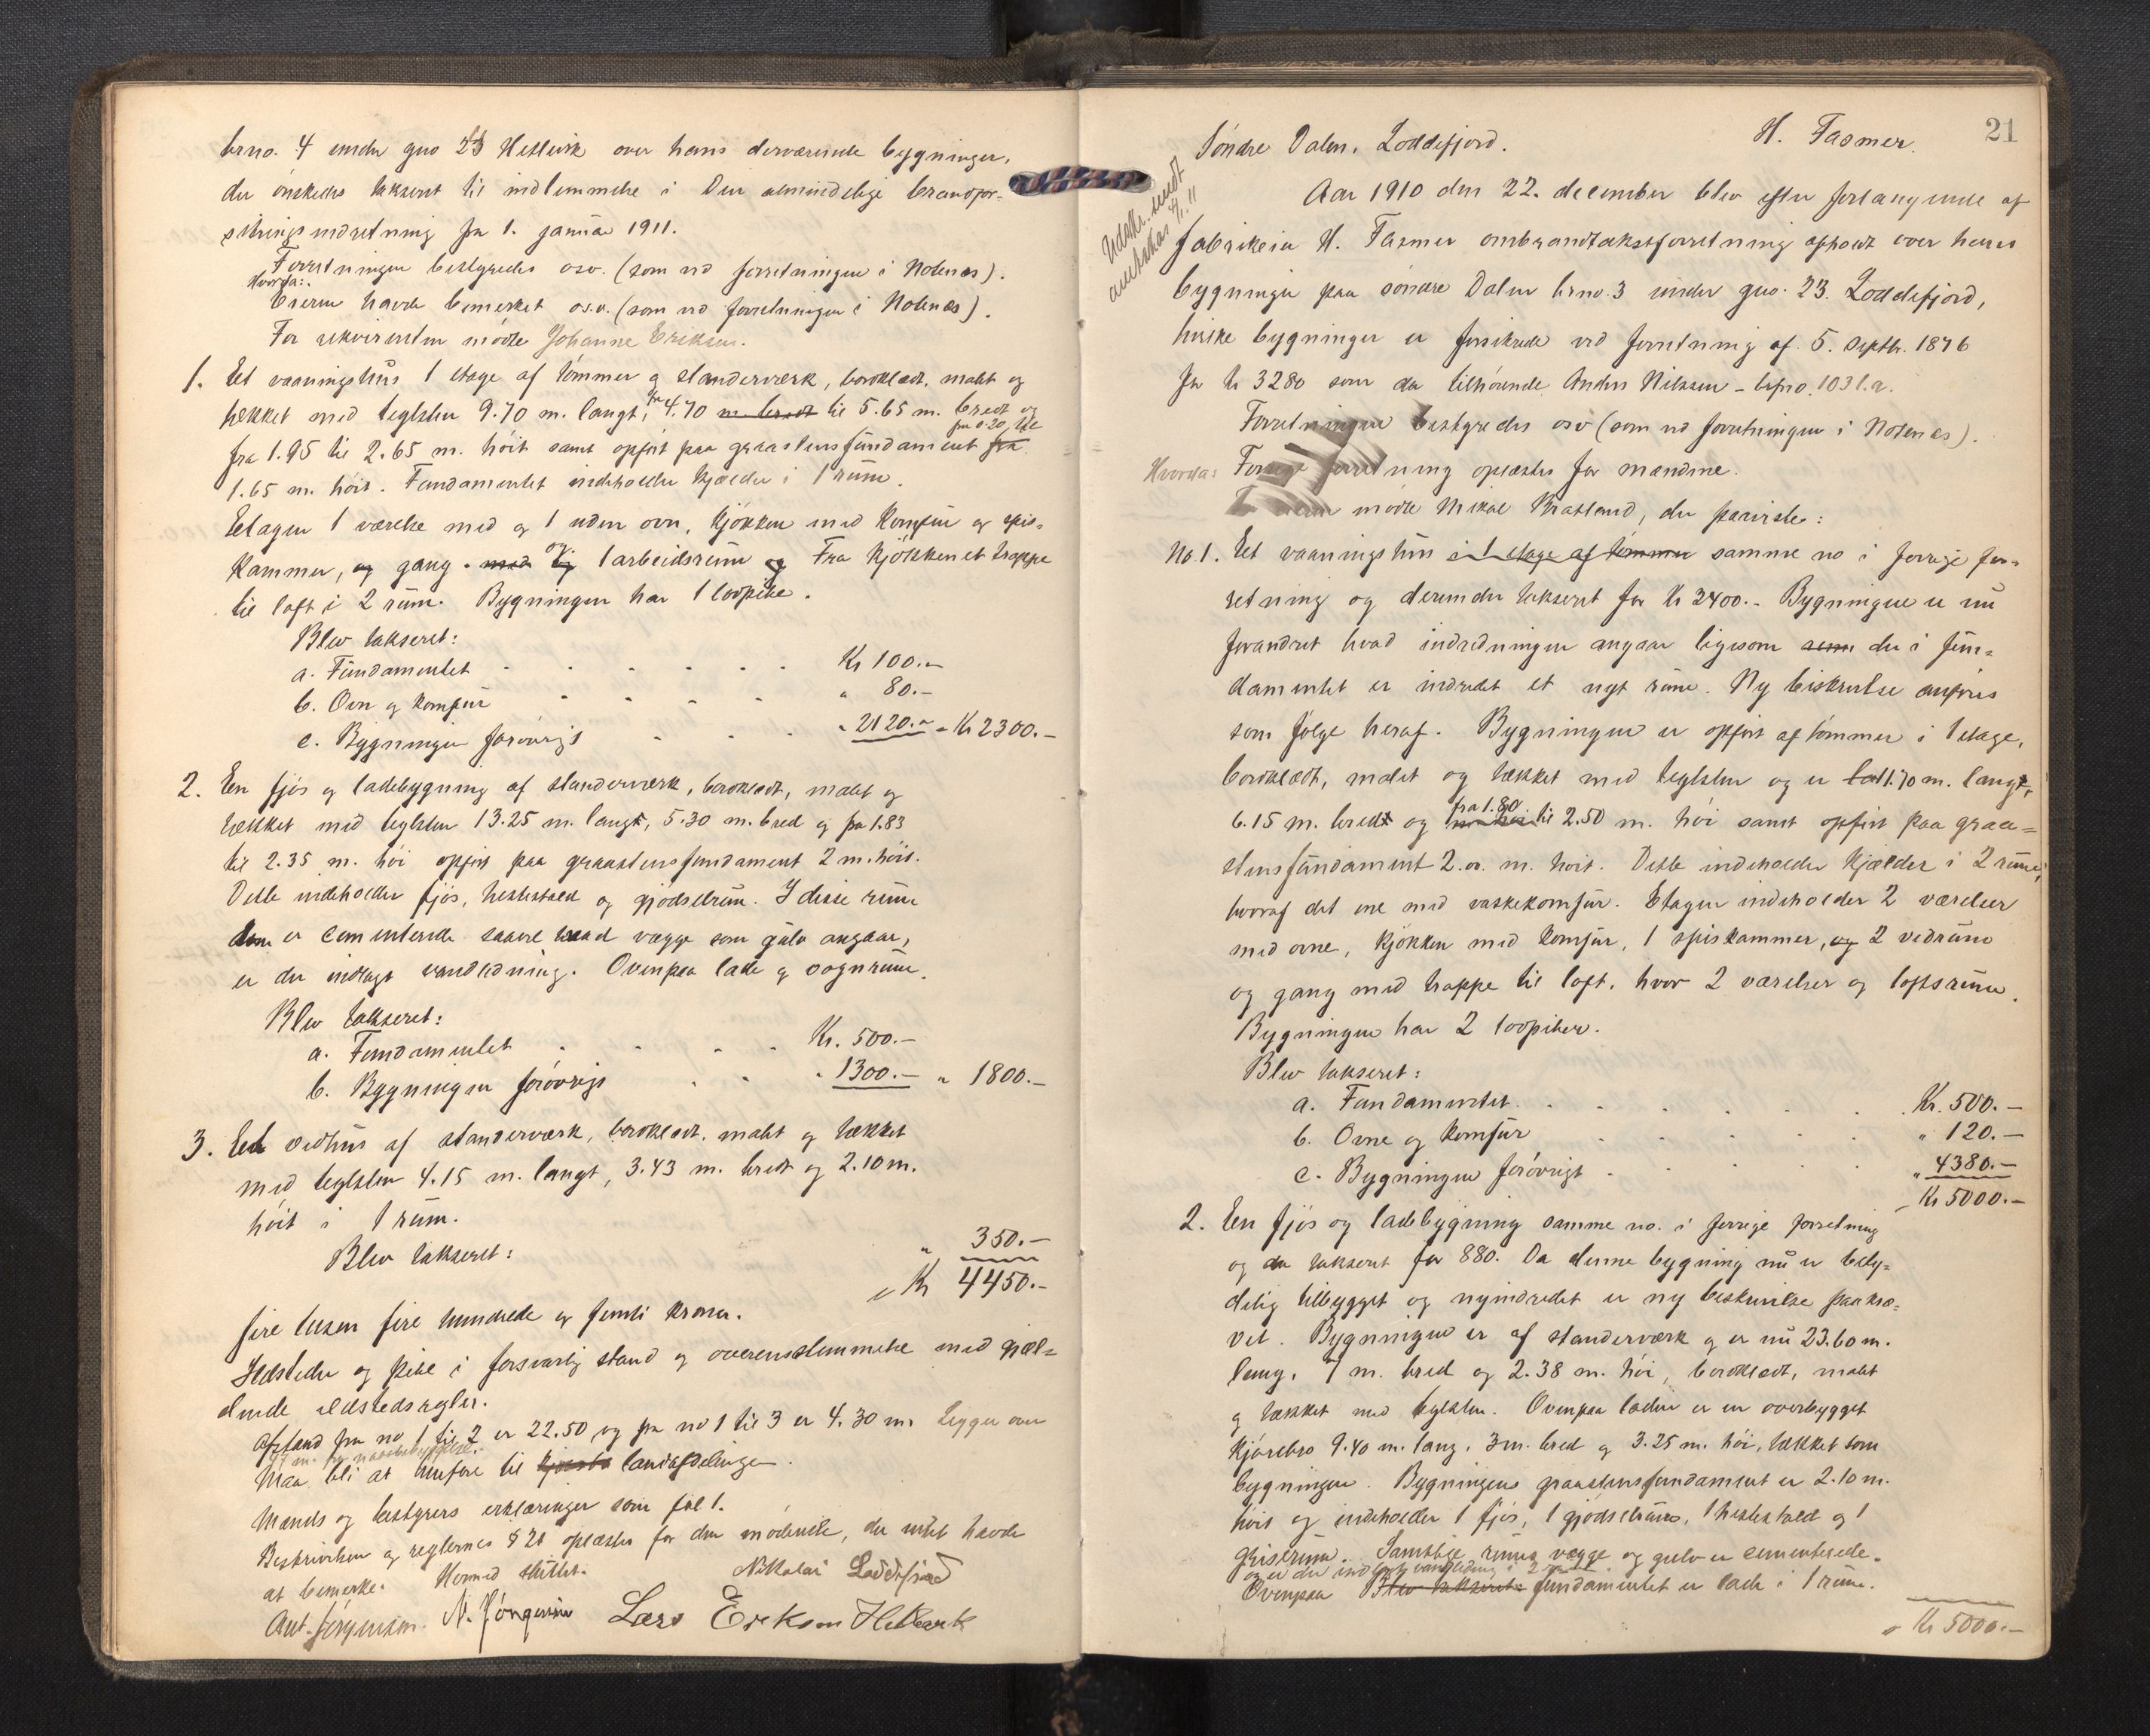 brno. 4 under gno 23 Hetlevik over hans derværende bygninger,
der ønskedes takseret til indlemmelse i Den almindelige brandfor-
sikringsindretning fra 1. januar 1911.
Forretningen bestyredes osv. (som ved forretningen i Notenes).
Hvorda:
Eieren havde bemerket os.v. (som ved forretningen i Notenes).
For rekvirenten mødte Johanne Eriksen.
1. Et vaaningshus 1 etage af tømmer og standerværk, bordklædt, malt og
tækket med teglsten 9.70 m. langt, fra 4.70 m. bredt til 5.65 m. bredt og
fra 1.95 til 2.65 m. høit samt opført paa graastensfundament fra fra 0.20 til
1.65 m. høit. Fundamentet indeholder kjælder i 1 rum.
Etagen 1 værelse med og 1 uden ovn, kjøkken med komfur og spis-
kammer, og gang med og 1 arbeidsrum og Fra kjøkkenet trappe
til loft i 2 rum. Bygningen har 1 lodpibe.
Blev takseret:
a. Fundamentet Kr 100.-
b. Ovn og komfur " 80.-
c. Bygningen forøvrigt " 2120.- = Kr 2300.-
2. En fjøs og ladebygning af standerværk, bordklædt, malt og
tækket med teglsten 13.25 m. langt, 5.30 m. bred og fra 1.83
til 2.35 m. høi opført paa graastensfundament 2 m. høit.
Dette indeholder fjøs, hestestald og gjødselrum. I disse rum
som er cementerede saavel hvad vægge som gulv angaar,
er der indlagt vandledning. Ovenpaa lade og vognrum.
Blev takseret:
a. Fundamentet Kr. 500.-
b. Bygningen forøvrigt " 1300.- " 1800.-
3. Et vedhus af standerværk, bordklædt, malt og tækket
med teglsten 4.15 m. langt, 3.43 m. bredt og 2.10 m.
høit i 1 rum.
Blev takseret: " 350.-
Kr 4450.-
fire tusen fire hundrede og femti kroner.
Ildsteder og pibe i forsvarlig stand og overensstemmelse med gjæl-
dende ildstedsregler.
Afstand fra no 1 til 2 er 22.50 og fra no 1 til 3 er 4.30 m. Ligger over
m. fra nabobebyggelse.
Maa bli at henføre til landafdelingen.
Mænds og bestyrers erklæringer som fol 1.
Beskrivelsen og reglernes § 21 oplæstes for den mødende, der intet havde
at bemerke. Hermed sluttet.
Nikolai Loddefjord
Ant. Jørgensen. N. Jørgensen Lars Erikson Hetlevik
21
Søndre Dalen, Loddefjord. H. Fasmer.
Udskr. sendt
amtskas 4/1 11
Aar 1910 den 22. december blev efter forlangende af
fabrikeier H. Fasmer ombrandtakstforretning afholdt over hans
bygninger paa søndre Dalen brno. 3 under gno. 23. Loddefjord,
hvilke bygninger er forsikrede ved forretning af 5. septbr. 1896
for kr 3280 som da tilhørende Anders Nilssen - bpno. 1031.a.
Forretningen bestyredes osv (som ved forretningen i Notenes).
Hvorda: Forrige forretning oplæstes for mændene.
mødte Mikal Kratland, der paaviste:
No. 1. Et vaaningshus i 1 etage af tømmer samme no i forrige for-
retning og derunder takseret for kr 2400.- Bygningen er nu
forandret hvad indredningen angaar ligesom som der i fun-
damentet er indredet et nyt rum. Ny beskrivelse anføres
som følge heraf. Bygningen er opført af tømmer i 1 etage,
bordklædt, malet og tækket med teglsten og er 11.70 m. lang,
6.15 m. bred og fra 1.80 til 2.50 m. høi samt opført paa graa-
stensfundament 2.00 m. høit. Dette indeholder kjælder i 2 rum,
hvoraf det ene med vaskekomfur. Etagen indeholder 2 værelser
med ovne, kjøkken med komfur, 1 spiskammer, og 2 vedrum
og gang med trappe til loft, hvor 2 værelser og loftsrum.
Bygningen har 2 lodpiber.
Blev takseret:
a. Fundamentet Kr. 500.-
b. Ovne og komfur " 120.-
c. Bygningen forøvrigt " 4380.-
Kr 5000.-
2. En fjøs og ladebygning samme no. i forrige forretning
og da takseret for 880. Da denne bygning nu er bety-
delig tilbygget og nyindredet er ny beskrivelse paakræ-
vet. Bygningen er af standerværk og er nu 23.60 m.
lang, 7 m. bred og 2.38 m. høi, bordklædt, malt
og tækket med teglsten. Ovenpaa laden er en overbygget
kjørebro 9.40 m. lang, 3 m. bred og 3.25 m. høi, tækket som
bygningen. Bygningens graastensfundament er 2.10 m.
høit og indeholder 1 fjøs, 1 gjødselrum, 1 hestestald og 1
griserum. Samtlige rums vægge og gulv er cementerede.
og er der indlagt vandledning i 2 rum.
Ovenpaa Blev takseret: fundamentet er lade i 1 rum.
Kr 5000.-